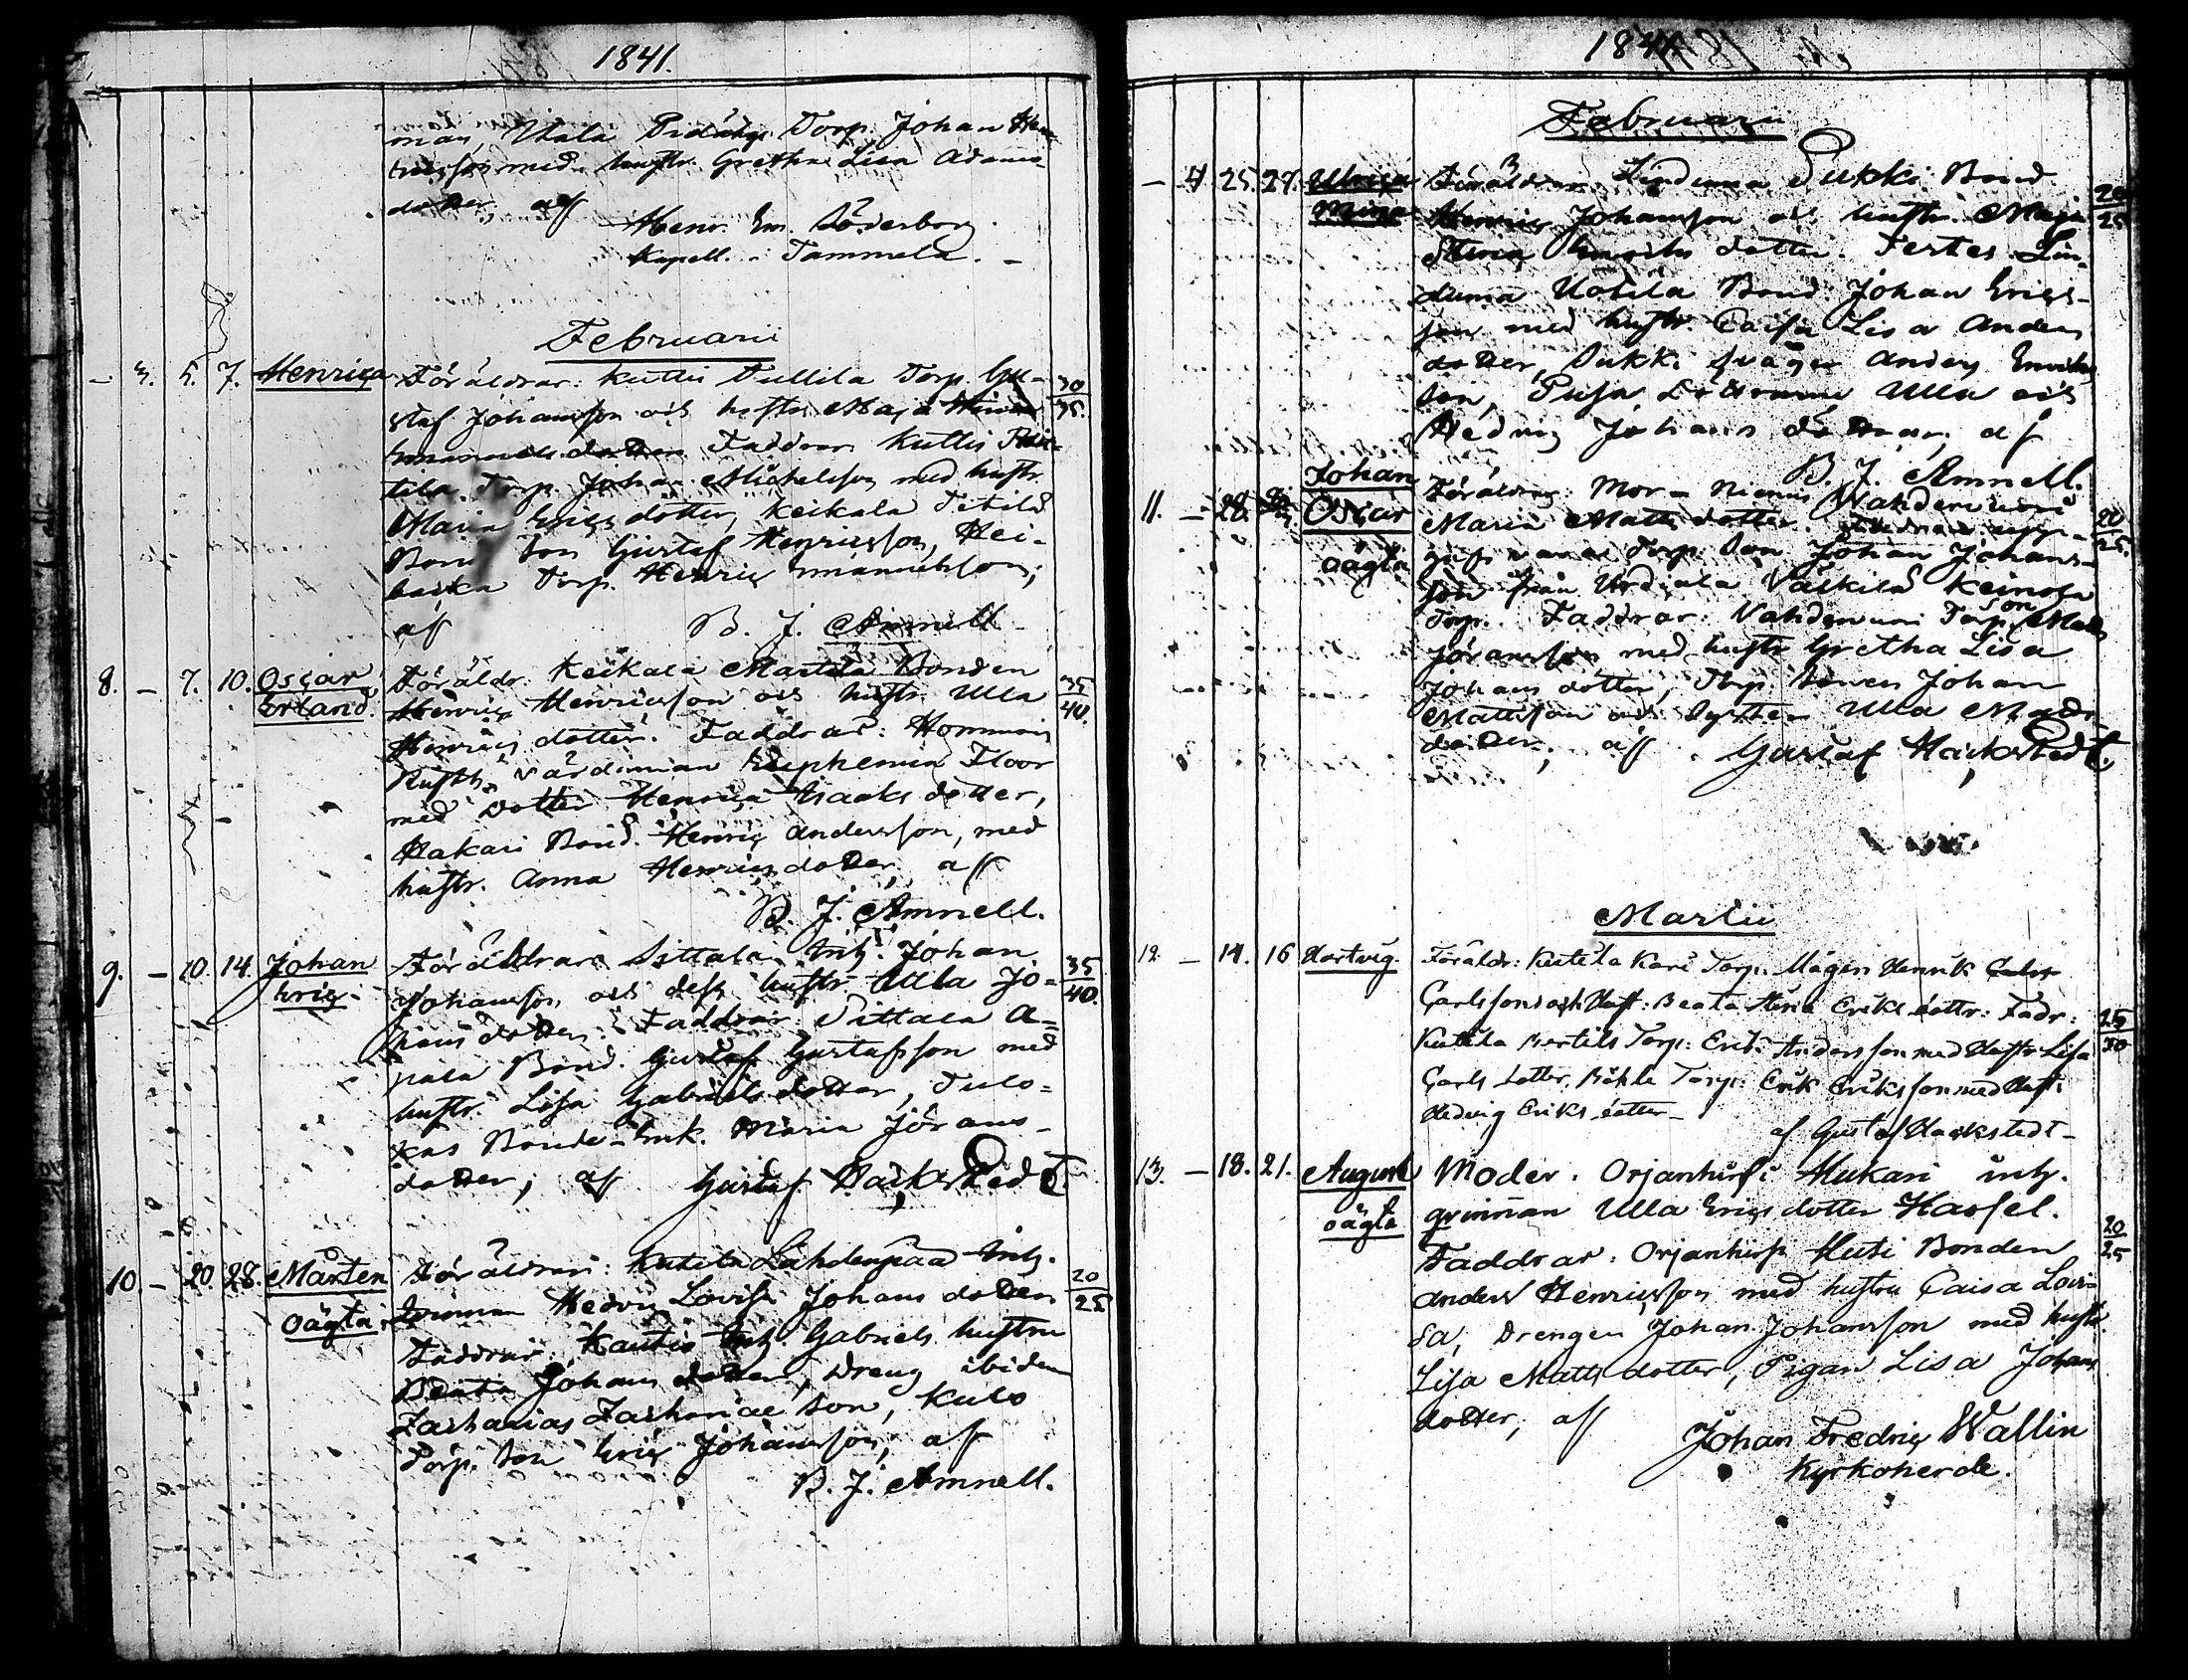 1841.
man, Utala Torp. Johan Hen-
ricsson med hustr. Gretha Lisa Adams-
dotter, aff
Henr. Em. Söderborg
Kapell. i Tammela. -
Februarii
- 3. 5. 7. Henrica Föräldrar: Kuttis Tullila Torp. Gu- 30/35.
staf Johansson och hustr. Maja Stina
Emanuels dotter. Faddrar: Kuttis
Torp. Johan Michelsson med hustr.
Maria Erics dotter, Keikala Titilä
Bond Son Gustaf Henricsson, Hei-
Torp. Henric Emanuelsson;
aff B. J. Amnell
8. - 7. 10. Oscar Föräldr: Keikala Marttila Bonden 35/40.
Erland. Henric Henricsson och hustr. Ulla
Henrics dotter. Faddrar: Hommois
Rusth. värdinnan Euphemia Floor
med dotter Henrica Isaaks dotter,
Hakari Bond. Henric Andersson, med
hustr. Anna Henrics dotter, aff
B. J. Amnell.
9. - 10. 14. Johan Föräldrar: Sittala Inh. Johan 35/40.
Eric. Johansson och dess hustr. Ulla Jo-
hans dotter. Faddrar: Sittala A-
pala Bond. Gustaf Gustafsson med
hustr. Lisa Gabriels dotter, Tulo-
kas Bonde-Enk. Maria Jörans-
dotter, aff Gustaf Hackstedt
10 - 20. 28. Mårten Föräldrar: Kutila Lähdenpää Inh. 20/25
oägta. Hedvig Lovisa Johans dotter
Faddrar: Kautio Inh. Gabriels hustru
Beata Johans dotter, Dreng ibidem
Zacharias Zachariae Son, Kulo
Torp. Son Eric Johansson, aff
B. J. Amnell.
1841
Februarii
- 4 25. 27. Ulrica Föräldrar: Sukki Bond. 20/25
Mina Henric Johansson och hustr. Maja
Stina Henriks dotter. Testes: Lin-
Uotila Bond. Johan Erics-
son med hustr. Caisa Lisa Anders
dotter, Sukki svåger Anders
son, Pusa Döttrarne Ulla och
Hedvig Johans döttrar, af
B. J. Amnell.
11. - 28. Johan Oscar Föräldrar: Mor - Niemis Vahderuum
oägta Maria Matts dotter. Fadren upp- 20/25.
Torp. Son Johan Johans-
son från Urdiala Välkilä Keinosa
Torp. Faddrar: Vahderuum Torp. Son Matts
Jöransson med hustr. Gretha Lisa
Johans dotter, Torp. Sonen Johan
Mattsson och Syster Ulla Matts
dotter, aff Gustaf Hackstedt.
Martii
12. - 14. 16 Hartvig. Föräldr: Kutila Kari Torp. Mågen Henrik
Carlsson och Hust: Beata Stina Eriks dottr: Fadr: 25/30
Kutila Bertils Torp: Erik Andersson med Hustr Lisa
Carls dotter, Böhle Torp: Erik Eriksson med Hust:
Hedvig Eriks dotter -
af Gustaf Hackstedt -
13. - 18. 21. August Moder: Orjanhirsi Mukari inh.
oägta grinnan Ulla Erics dotter Hassel.
Faddrar: Orjanhirsi Huti Bonden 20/25
Anders Henricsson med hustru Caisa Lovi-
sa, Drengen Johan Johansson med hustr.
Lisa Matts dotter, Pigan Lisa Johans
dotter, aff
Johan Fredric Wallin
Kyrkoherde.